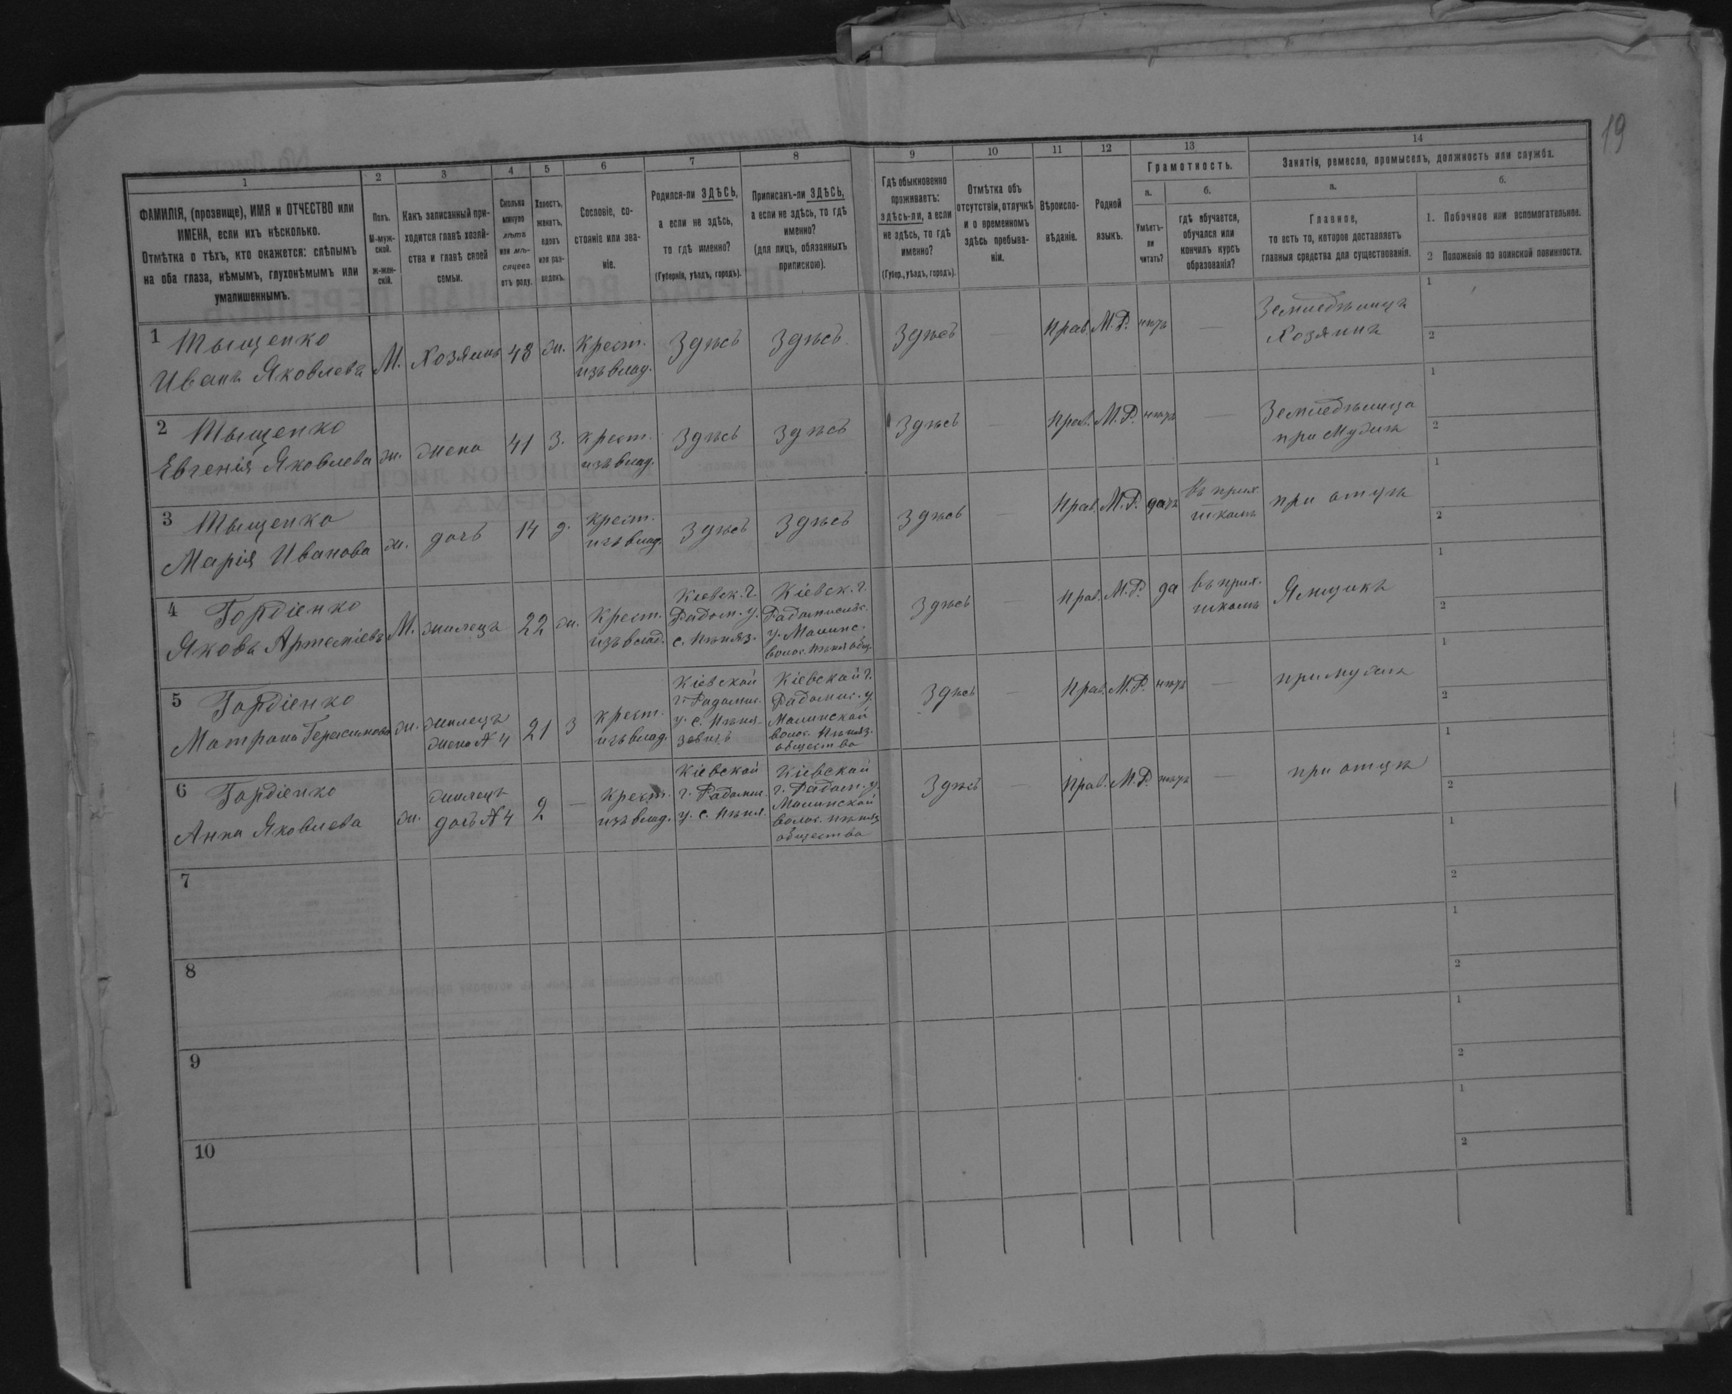 19
1
2
3
4
5
6
7
8
9
10
11
12
13
14
ФАМИЛІЯ, (прозвище), ИМЯ и ОТЧЕСТВО или
ИМЕНА, если ихъ нѣсколько.
Отмѣтка о тѣхъ, кто окажется: слѣпымъ
на оба глаза, нѣмымъ, глухонѣмымъ или
умалишеннымъ.
Полъ.
М-муж-
ской.
ж-жен-
скій.
Какъ записанный при-
ходится главѣ хозяй-
ства и главѣ своей
семьи.
Сколько
минуло
лѣтъ
или мѣ-
сяцевъ
отъ роду.
Холостъ,
женатъ,
вдовъ
или раз-
веденъ.
Сословіе, со-
стояніе или зва-
ніе.
Родился-ли ЗДѢСЬ,
а если не здѣсь,
то гдѣ именно?
(Губернія, уѣздъ, городъ).
Приписанъ-ли ЗДѢСЬ,
а если не здѣсь, то гдѣ
именно?
(для лицъ, обязанныхъ
припискою).
Гдѣ обыкновенно
проживаетъ:
здѣсь-ли, а если
не здѣсь, то гдѣ
именно?
(Губер., уѣздъ, городъ).
Отмѣтка объ
отсутствіи, отлучкѣ
и о временномъ
здѣсь пребыва-
ніи.
Вѣроиспо-
вѣданіе.
Родной
языкъ.
Грамотность.
а.
Умѣетъ-
ли
читать?
б.
гдѣ обучается,
обучался или
кончилъ курсъ
образованія?
Занятія, ремесло, промыселъ, должность или служба.
а.
Главное,
то есть то, которое доставляетъ
главныя средства для существованія.
б.
1. Побочное или вспомогательное.
2 Положеніе по воинской повинности.
1 Тыщенко
Иванъ Яковлевъ М. Хозяинъ 48 ж. Крест. изъ влад. Здѣсь Здѣсь. Здѣсь — Прав. М.Р. нѣтъ — Земледѣлецъ Хозяинъ 1 2
2 Тыщенко
Евгенія Яковлева ж. жена 41 з. Крест. изъ влад. Здѣсь Здѣсь Здѣсь — Прав. М.Р. нѣтъ — Земледѣлица при мужѣ 1 2
3 Тыщенко
Марія Иванова ж. дочь 14 д. Крест. изъ влад. Здѣсь Здѣсь Здѣсь — Прав. М.Р. да въ прих. школѣ при отцѣ 1 2
4 Гордіенко
Яковъ Артеміевъ М. жилецъ 22 ж. Крест. изъ влад. Кіевск. г. Радом. у. с. Кіевск. г. Радомысльс. у. Малинс. волос. Здѣсь — Прав. М.Р. да въ прих. школѣ Ямщикъ 1 2
5 Гордіенко
Матрона Герасимова ж. жилецъ жена №4 21 з Крест. изъ влад. Кіевской г. Радомыс. у. с. Кіевской г. Радомыс. у. Малинской волос. общества Здѣсь — Прав. М.Р. нѣтъ — при мужѣ 1 2
6 Гордіенко
Анна Яковлева ж. жилецъ дочь №4 2 — Крест. изъ влад. Кіевской г. Радомыс. у. с. Кіевской г. Радом. у. Малинской волос. общества Здѣсь — Прав. М.Р. нѣтъ — при отцѣ 1 2
7 1 2
8 1 2
9 1 2
10 1 2